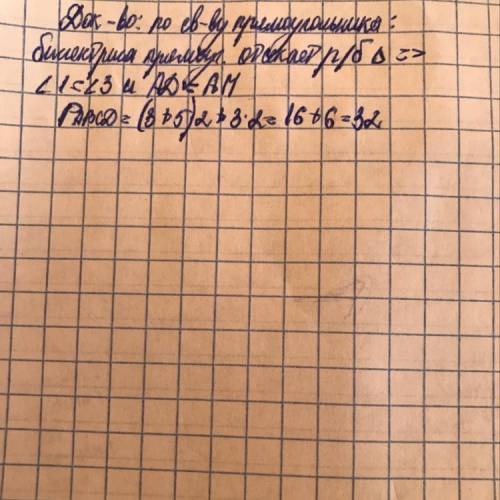 Док-во: по св-ву прямоугольника:
биссектриса прямоуг. отсекает р/б Δ =>
∠1=∠3 и AD=AM
PABCD=(3+5)2+3·2=16+6=32